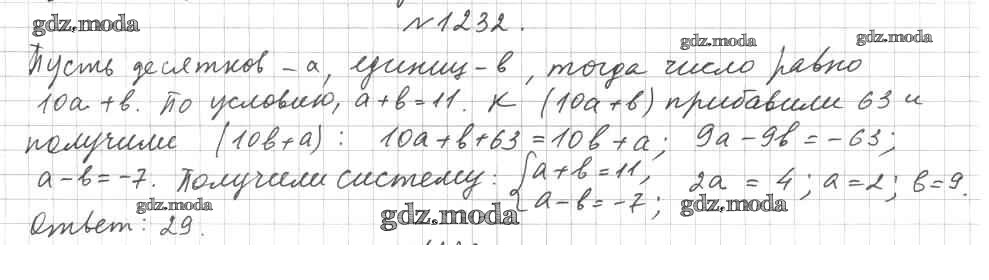 №1232.
gdz.moda
gdz.moda
gdz.moda
Пусть десятков - а, единиц - в, тогда число равно
10а + в. По условию, а + в = 11. К (10а + в) прибавили 63 и
получили (10в + а) : 10а + в + 63 = 10в + а; 9а - 9в = -63;
а - в = -7. Получили систему: { а + в = 11, а - в = -7; 2а = 4; а = 2; в = 9.
gdz.moda
gdz.moda
gdz.moda
Ответ: 29.